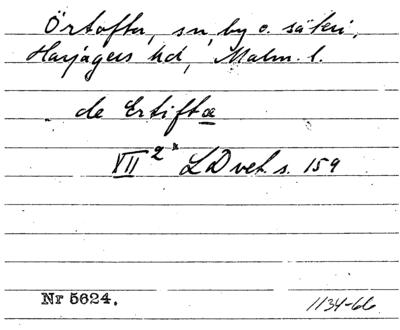 Örtofta, sn, by o. säteri,
Harjagers hd, Malm. l.
de Ertiftæ
VII 2* LD vet. s. 159
Nr 5624.
1134-66